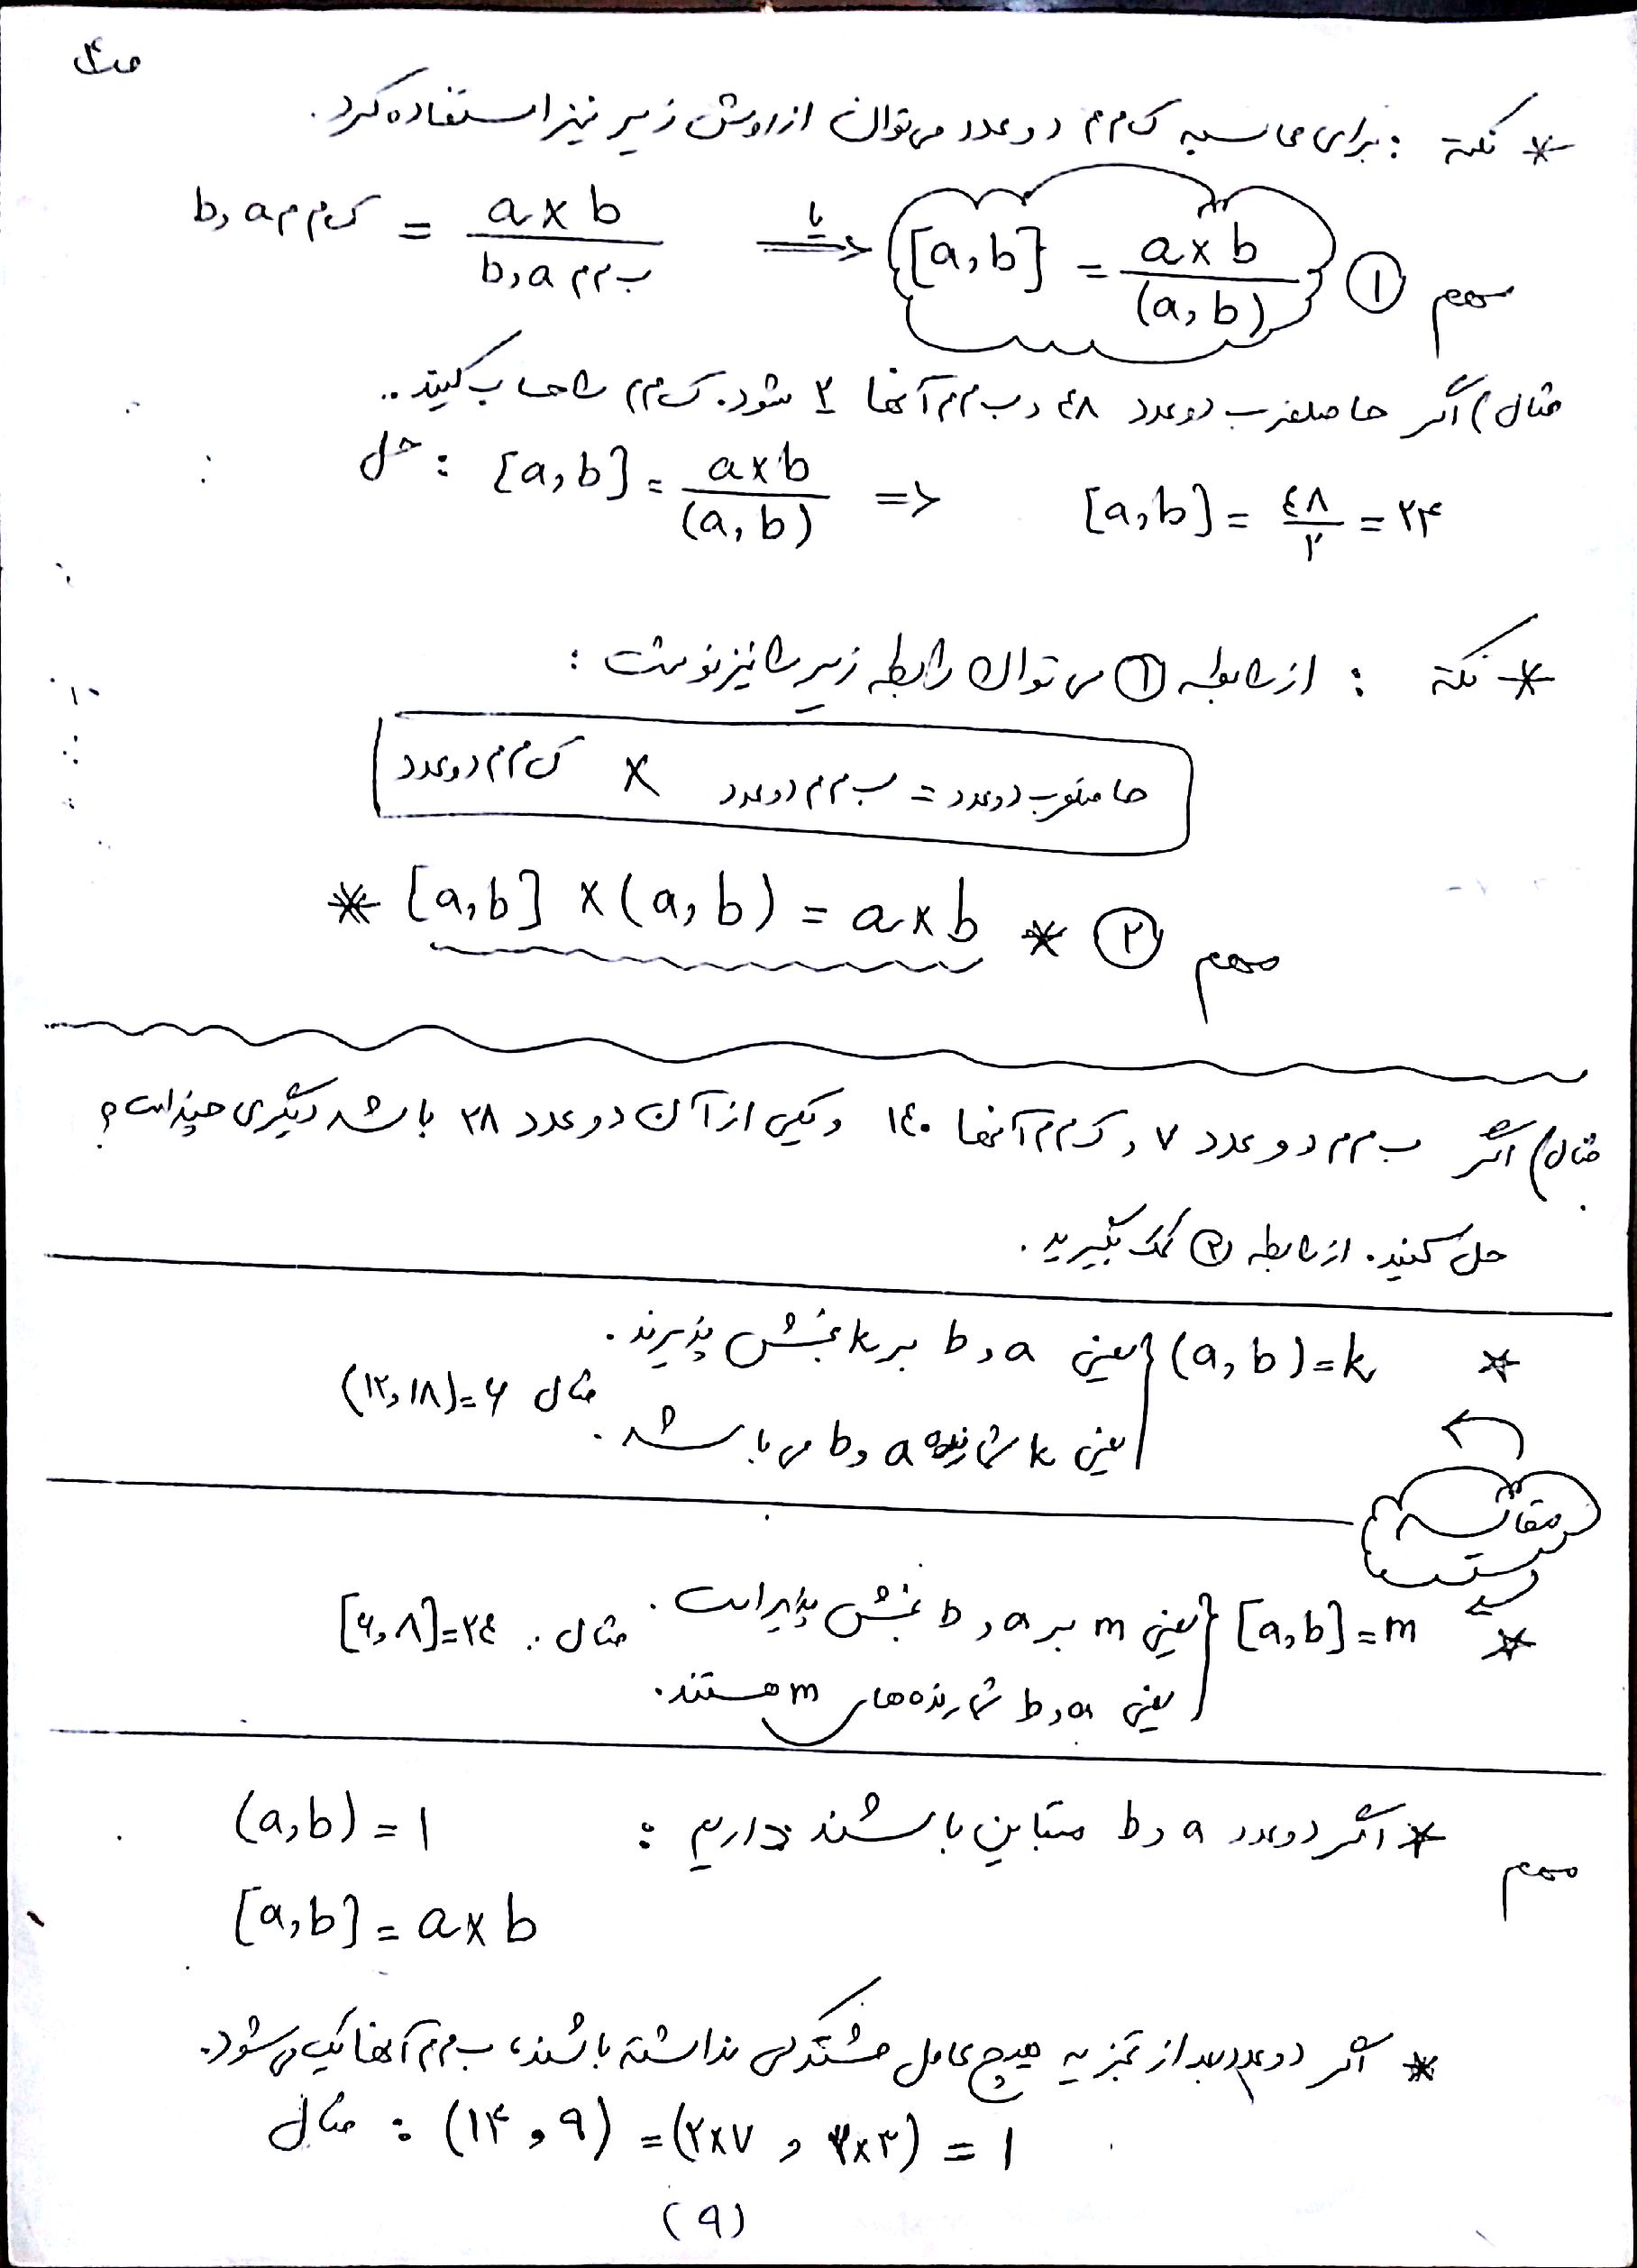 ص۴
* نکته : برای محاسبه ک م م دو عدد می‌توان از روش زیر نیز استفاده کرد.
ک م م a و b = a×b / ب م م a و b ⟹ یا [a,b] = a×b / (a,b) ① مهم
مثال) اگر حاصلضرب دو عدد ٤٨ و ب م م آنها ٢ شود. ک م م را حساب کنید..
حل : [a,b] = a×b / (a,b) => [a,b] = ٤٨/٢ = ۲۴
* نکته : از رابطه ① می توان رابطه زیر را نیز نوشت :
حاصلضرب دو عدد = ب م م دو عدد × ک م م دو عدد
* [a,b] × (a,b) = a×b * ② مهم
مثال) اگر ب م م دو عدد ٧ و ک م م آنها ١٤٠ و یکی از آن دو عدد ٢٨ باشد دیگری چند است؟
حل کنید. از رابطه ② کمک بگیرید.
* (a,b)=k { یعنی a و b بر k بخش پذیرند.
یعنی k شمارنده a و b می باشد. مثال (۱۲,۱۸)=۶
مقایسه
* [a,b]=m { یعنی m بر a و b بخش پذیر است. مثال : [۶,۸]=٢٤
یعنی a و b شمارنده های m هستند.
* اگر دو عدد a و b متباین باشند داریم : (a,b) = ۱
مهم
[a,b] = a×b
* اگر دو عدد بعد از تجزیه هیچ عامل مشترکی نداشته باشند، ب م م آنها یک می شود.
مثال : (۱۴ , ۹) = (۲×۷ , ۳×۳) = ۱
(۹)